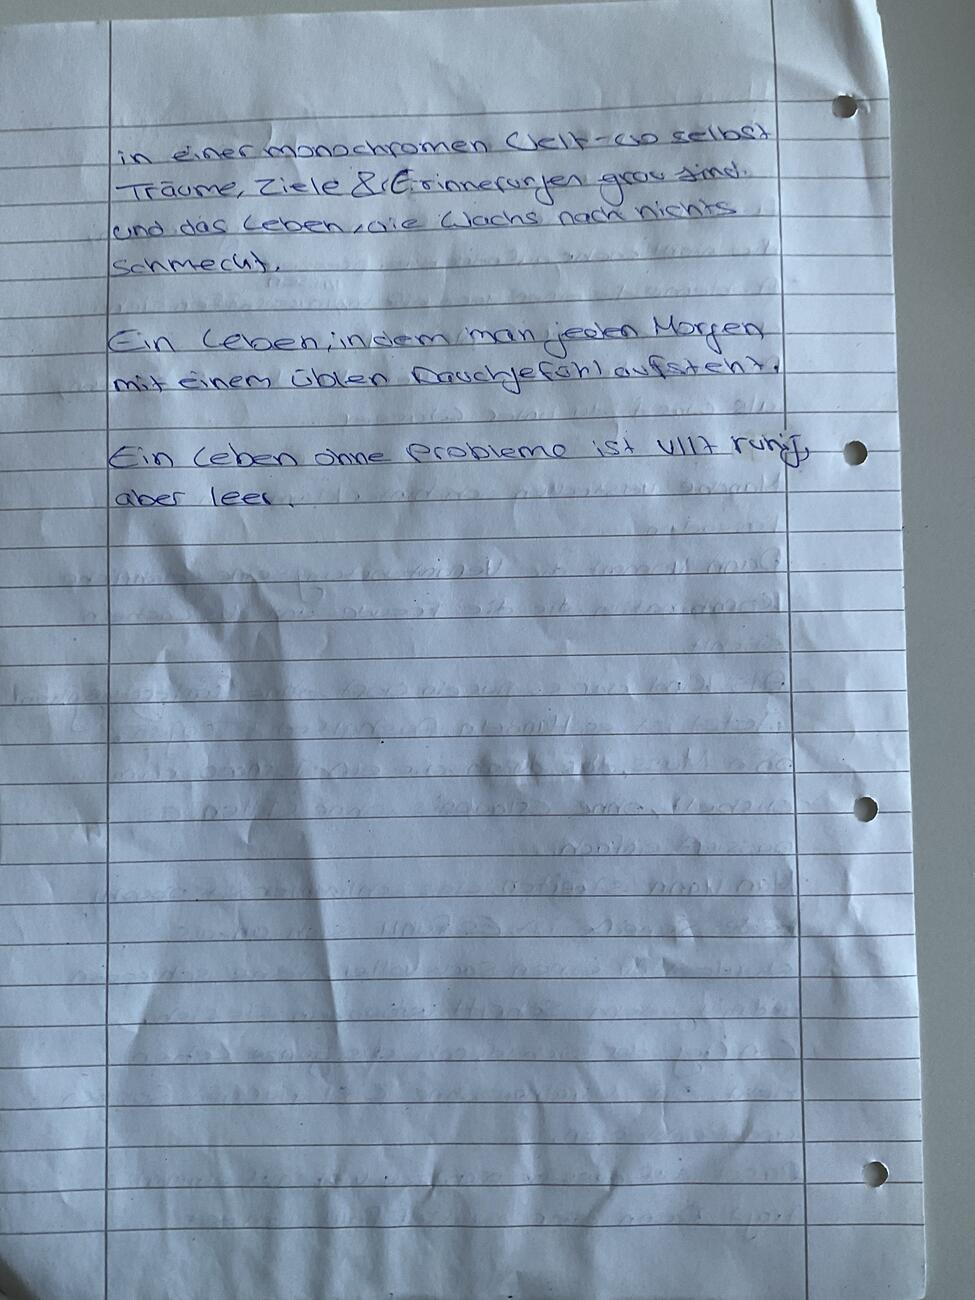 in einer monochromen Welt - wo selbst
Träume, Ziele & Erinnerungen grau sind.
und das Leben, wie Wachs nach nichts
schmeckt.
Ein Leben, in dem man jeden Morgen
mit einem üblen Bauchgefühl aufsteht.
Ein Leben ohne Probleme ist vllt ruhig,
aber leer.